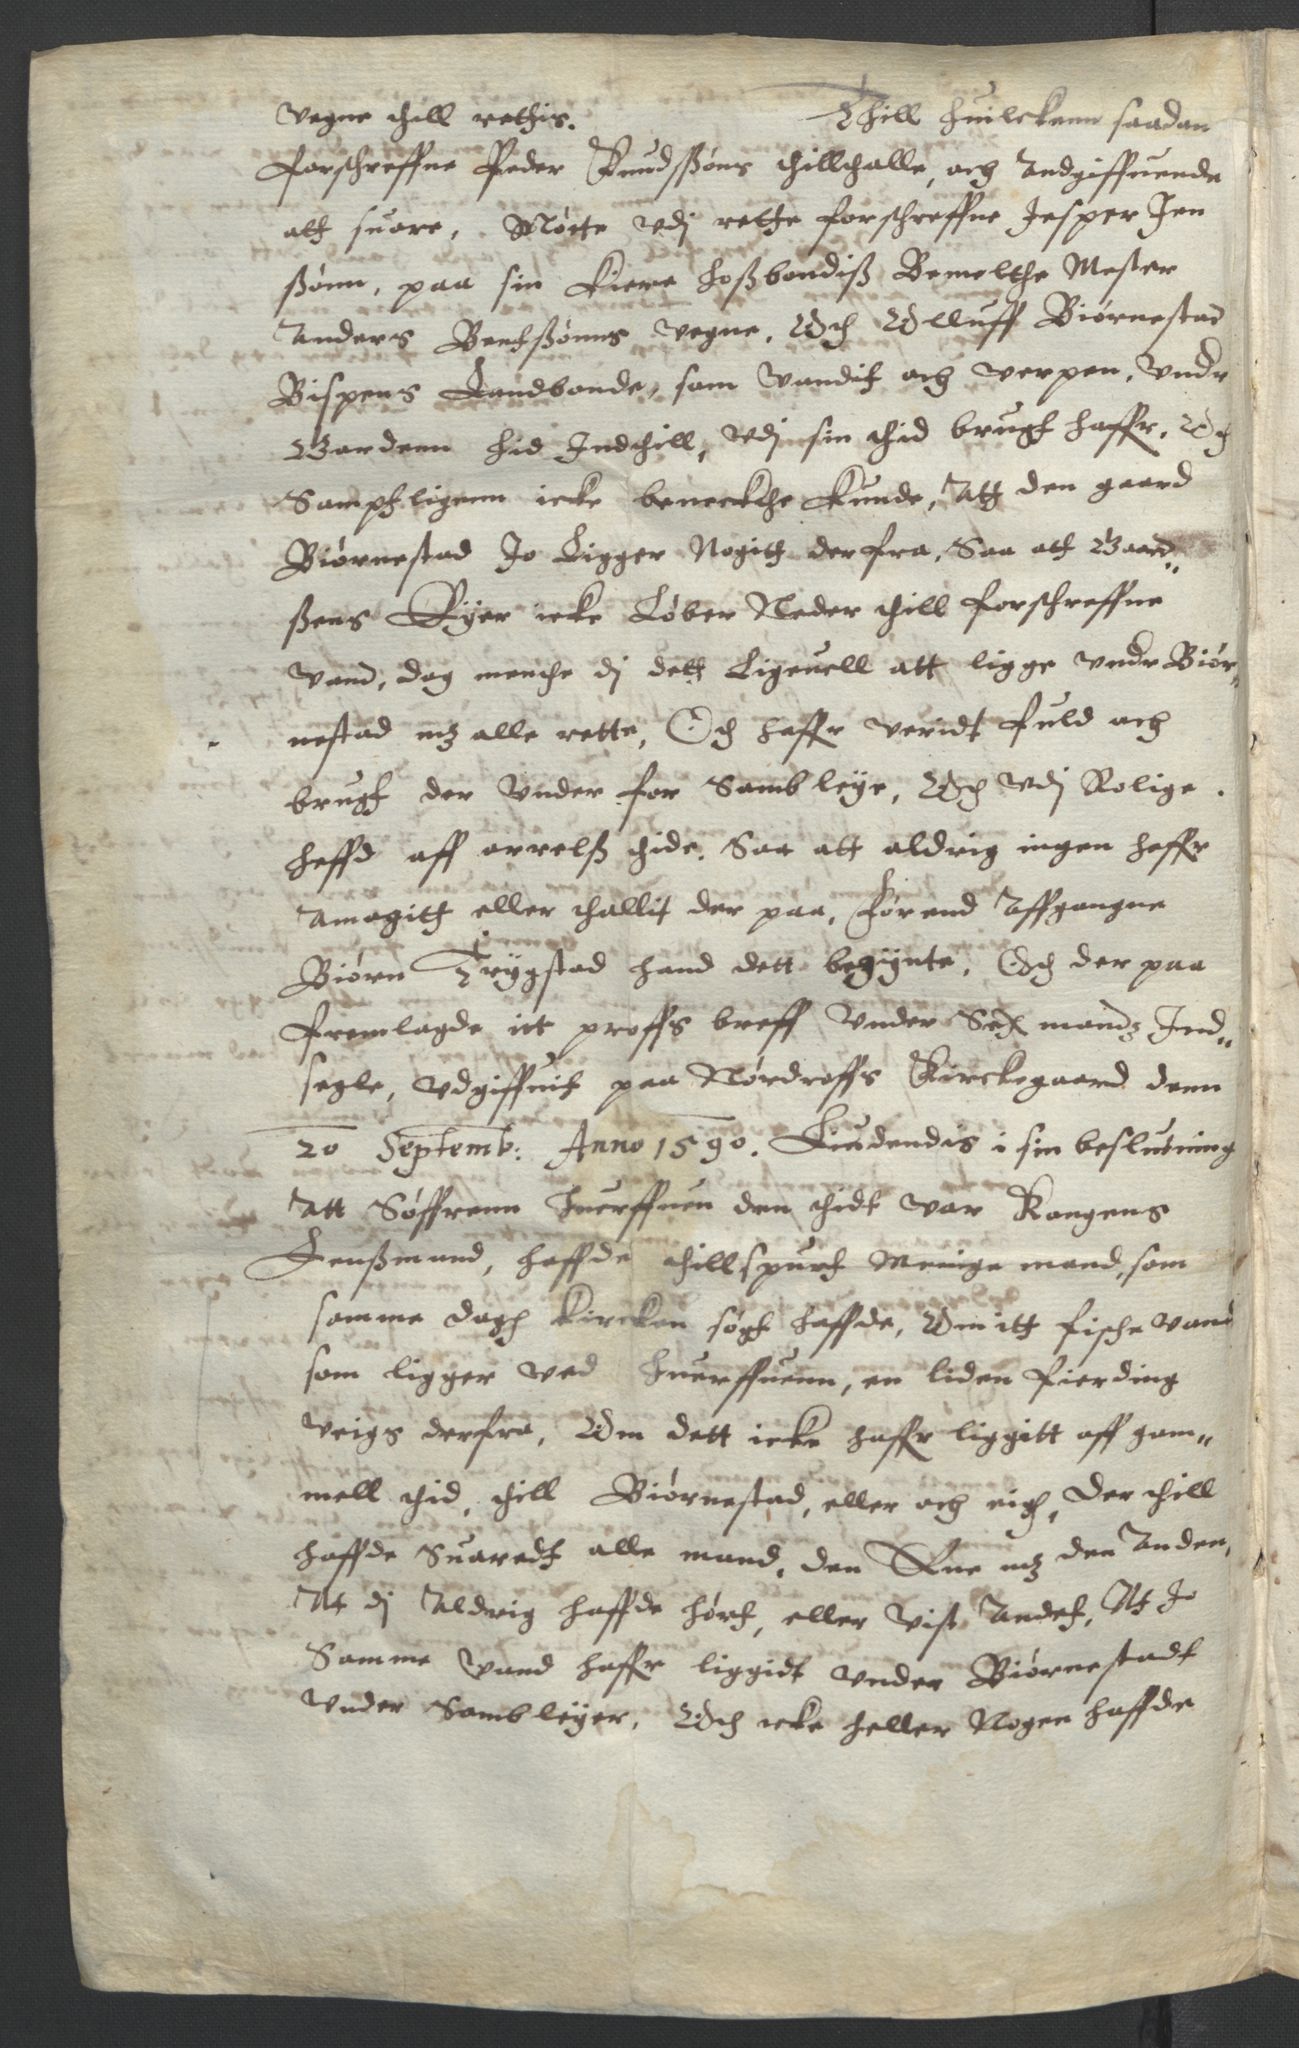 vegne thill rethis. Thill huilckenn saadan
forschreffne Peder Knudssøns thillthalle, och Andgiffuende
att suare, Møtte vdj rette forschreffne Jesper Jen
ßønn, paa sin kiere hoßbondiß Bemelthe Mester
Anders Bentßønns vegne, Och Olluff Biørnestad
Bispens Landbonde, som Vandit och verpen, vndr
Gardenn hid Indthill, vdj sin thid brugt haffr, Och
Sampthligenn icke beneckthe kunde, Att den gaard
Biørnestad Jo Ligger Nogith derfra, Saa att Gaard„
ßens Eyer icke Løber Neder thill forschreffne
vand, dog menthe dj dett Ligeuell att ligge vndr Biør„
nestad mz alle rette, Och haffr veridt fuld och
brugt der vnder for Samb leye, Och vdj Rolige
heffd aff arrelß thide. Saa att aldrig ingen haffr
Amagith eller thallit der paa, Førend Affgangne
Biørn Trygstad hand dett begynte, Och der paa
fremlagde itt proffs breff vnder Sex mandz Ind„
segle, vdgiffuit paa Nørdroffs Kirckegaard denn
20 Septemb: Anno 1590. Liudendis i sin beslutning
Att Søffrenn Huerffuen den thidt var Kongens
Lenßmand, haffde thillspurt Menige mand, som
samme dagh kircken søgt haffde, Om itt fische vand
som ligger ved Huerffuenn, en liden fierding
veigs derfra, Om dett icke haffr liggitt aff gam„
mell thid, thill Biørnestad, eller och eigh, Der thill
haffde Suaredt alle mand, den Ene mz den Anden,
At dj Aldrig haffde hørt, eller vist Andet, At Jo
Samme vand haffr liggidt vnder Biørnestadt
vnder Samb leyer, Och icke heller Nogen haffde